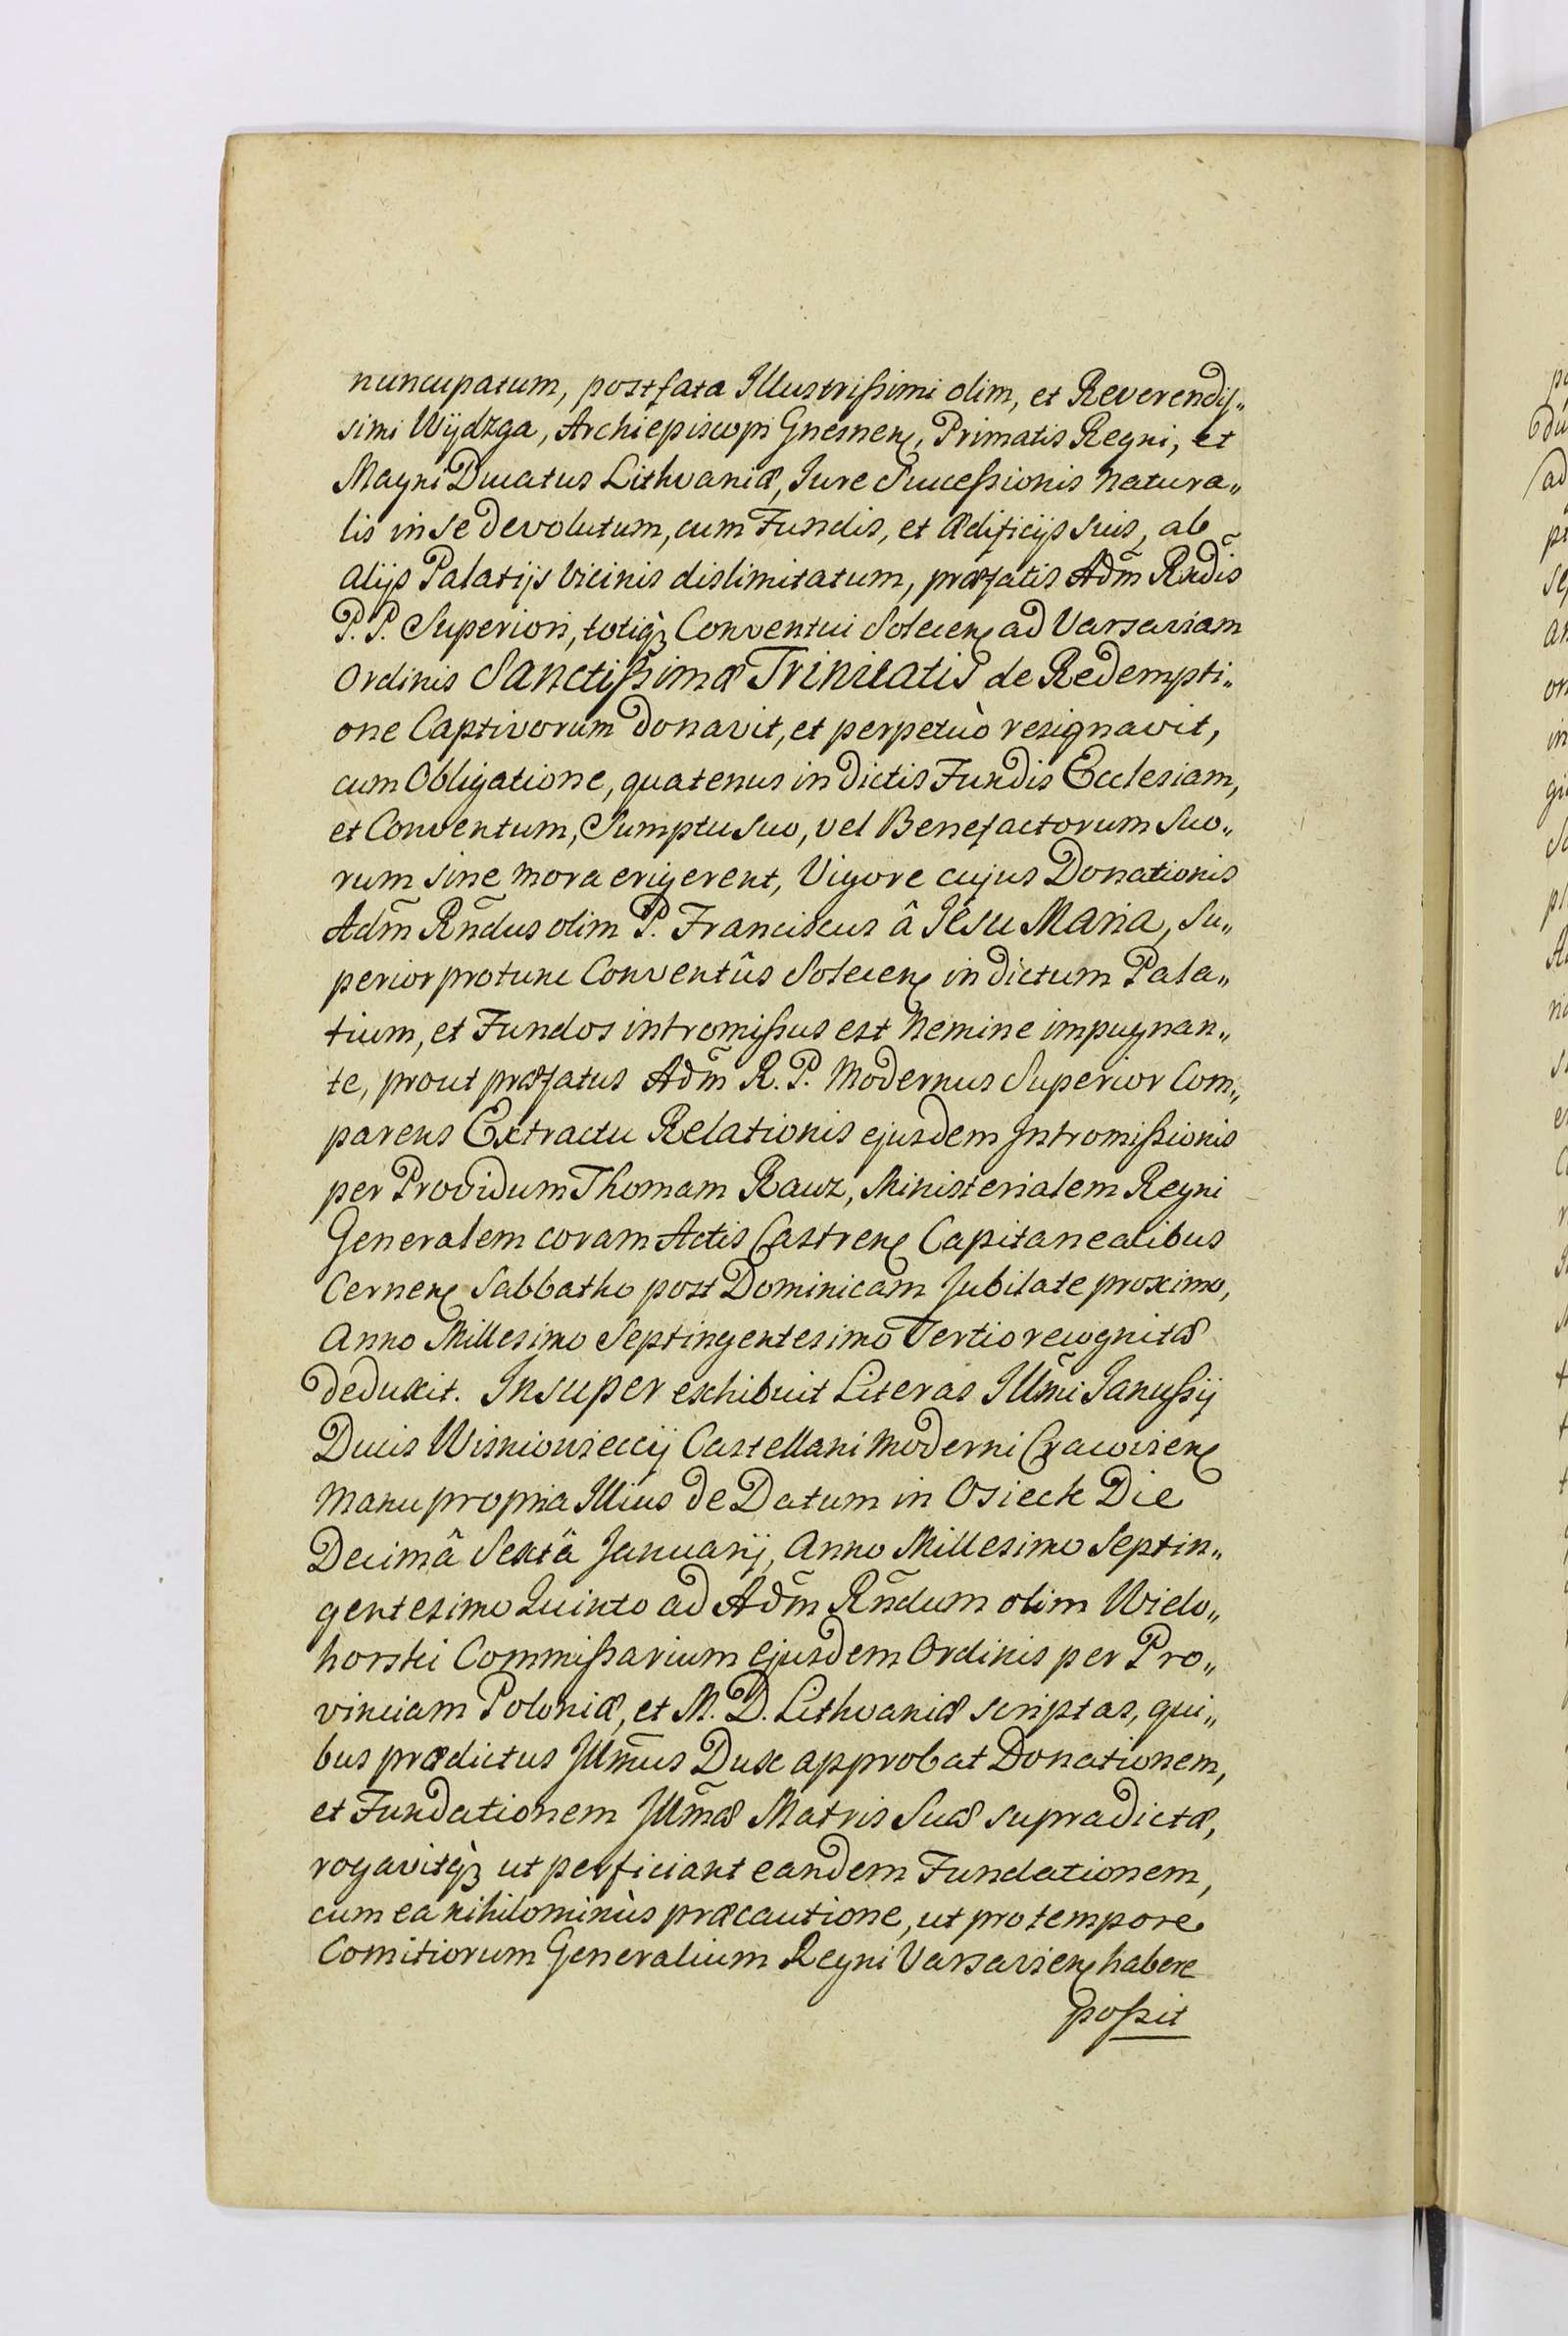 nuncupatum, post fata Illustrißimi olim, et Reverendis„
simi Wÿdzga, Archiepiscopi Gnesnen, Primatis Regni, et
Magni Ducatus Lithvaniæ, Jure Succeßionis natura„
lis in se devolutum, cum Fundis, et ædificijs suis, ab
alijs Palatijs vicinis dislimitatum, præfatis Adm̃ Rñdis
P. P. Superiori, totiq̀ꝫ Conventui Solecen ad Varsaviam
Ordinis Sanctißimæ Trinitatis de Redempti„
one Captivorum donavit, et perpetuò resignavit,
cum Obligatione, quatenus in dictis Fundis Ecclesiam,
et Conventum, Sumptu suo, vel Benefactorum Suo„
rum sine mora erigerent, Vigore cujus Donationis
Adm̃ Rñdus olim P. Franciscus â Jesu Maria, Su„
perior protunc Conventûs Solecen in dictum Pala„
tium, et Fundos intromißus est nemine impugnan„
te, prout præfatus Adm̃ R. P. Modernus Superior Com„
parens Extractu Relationis ejusdem Intromißionis
per Providum Thomam Rauz, Ministerialem Regni
Generalem coram Actis Castren Capitanealibus
Cernen Sabbatho post Dominicam Jubilate proximo,
Anno Millesimo Septingentesimo Tertio recognitæ
deduxit. Insuper exhibuit Literas Illm̃i Janußij
Ducis Wisniowieccij Castellani moderni Cracovien
manu propria Illius de Datum in Osieck Die
Decimâ Sextâ Januarij, Anno Millesimo Septin„
gentesimo Quinto ad Adm̃ Rñdum olim Wielo„
horski Commißarium ejusdem Ordinis per Pro„
vinciam Poloniæ, et M. D. Lithvaniæ scriptas, qui„
bus prædictus Illm̃us Dux approbat Donationem,
et Fundationem Illm̃æ Matris Suæ supradictæ,
rogavitq̀ꝫ ut perficiant eandem Fundationem,
cum ea nihilominùs præcautione, ut pro tempore
Comitiorum Generalium Regni Varsavien habere
poßit